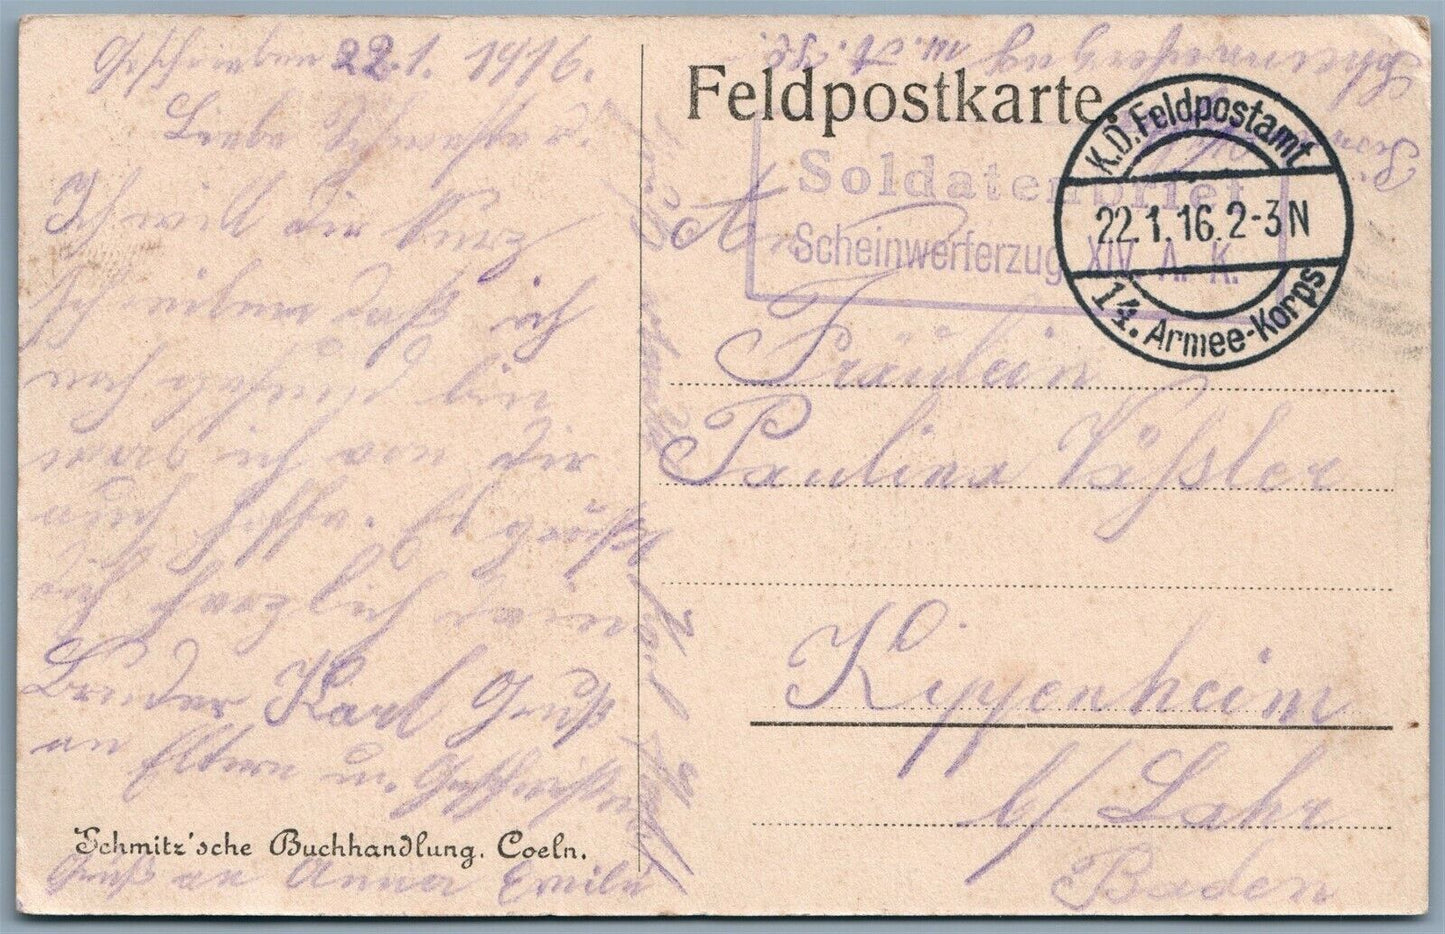 Geschrieben 22.1.1916.
Liebe Schwester
Ich will dir kurz
schreiben daß ich
bin
was ich von dir
auch hoffe. Es grüßt
dich herzlich dein
Bruder Karl Gruß
an Eltern u. Geschwister
Gruß an Anna Emilie
Schmitz'sche Buchhandlung. Coeln.
Feldpostkarte
Soldatenbrief
Scheinwerferzug XIV. A. K.
K.D. Feldpostamt
22.1.16. 2-3 N
14. Armee-Korps
An
Fräulein
Paulina Väßler
Kippenheim
b/ Lahr
Baden
Scheinwerferzug